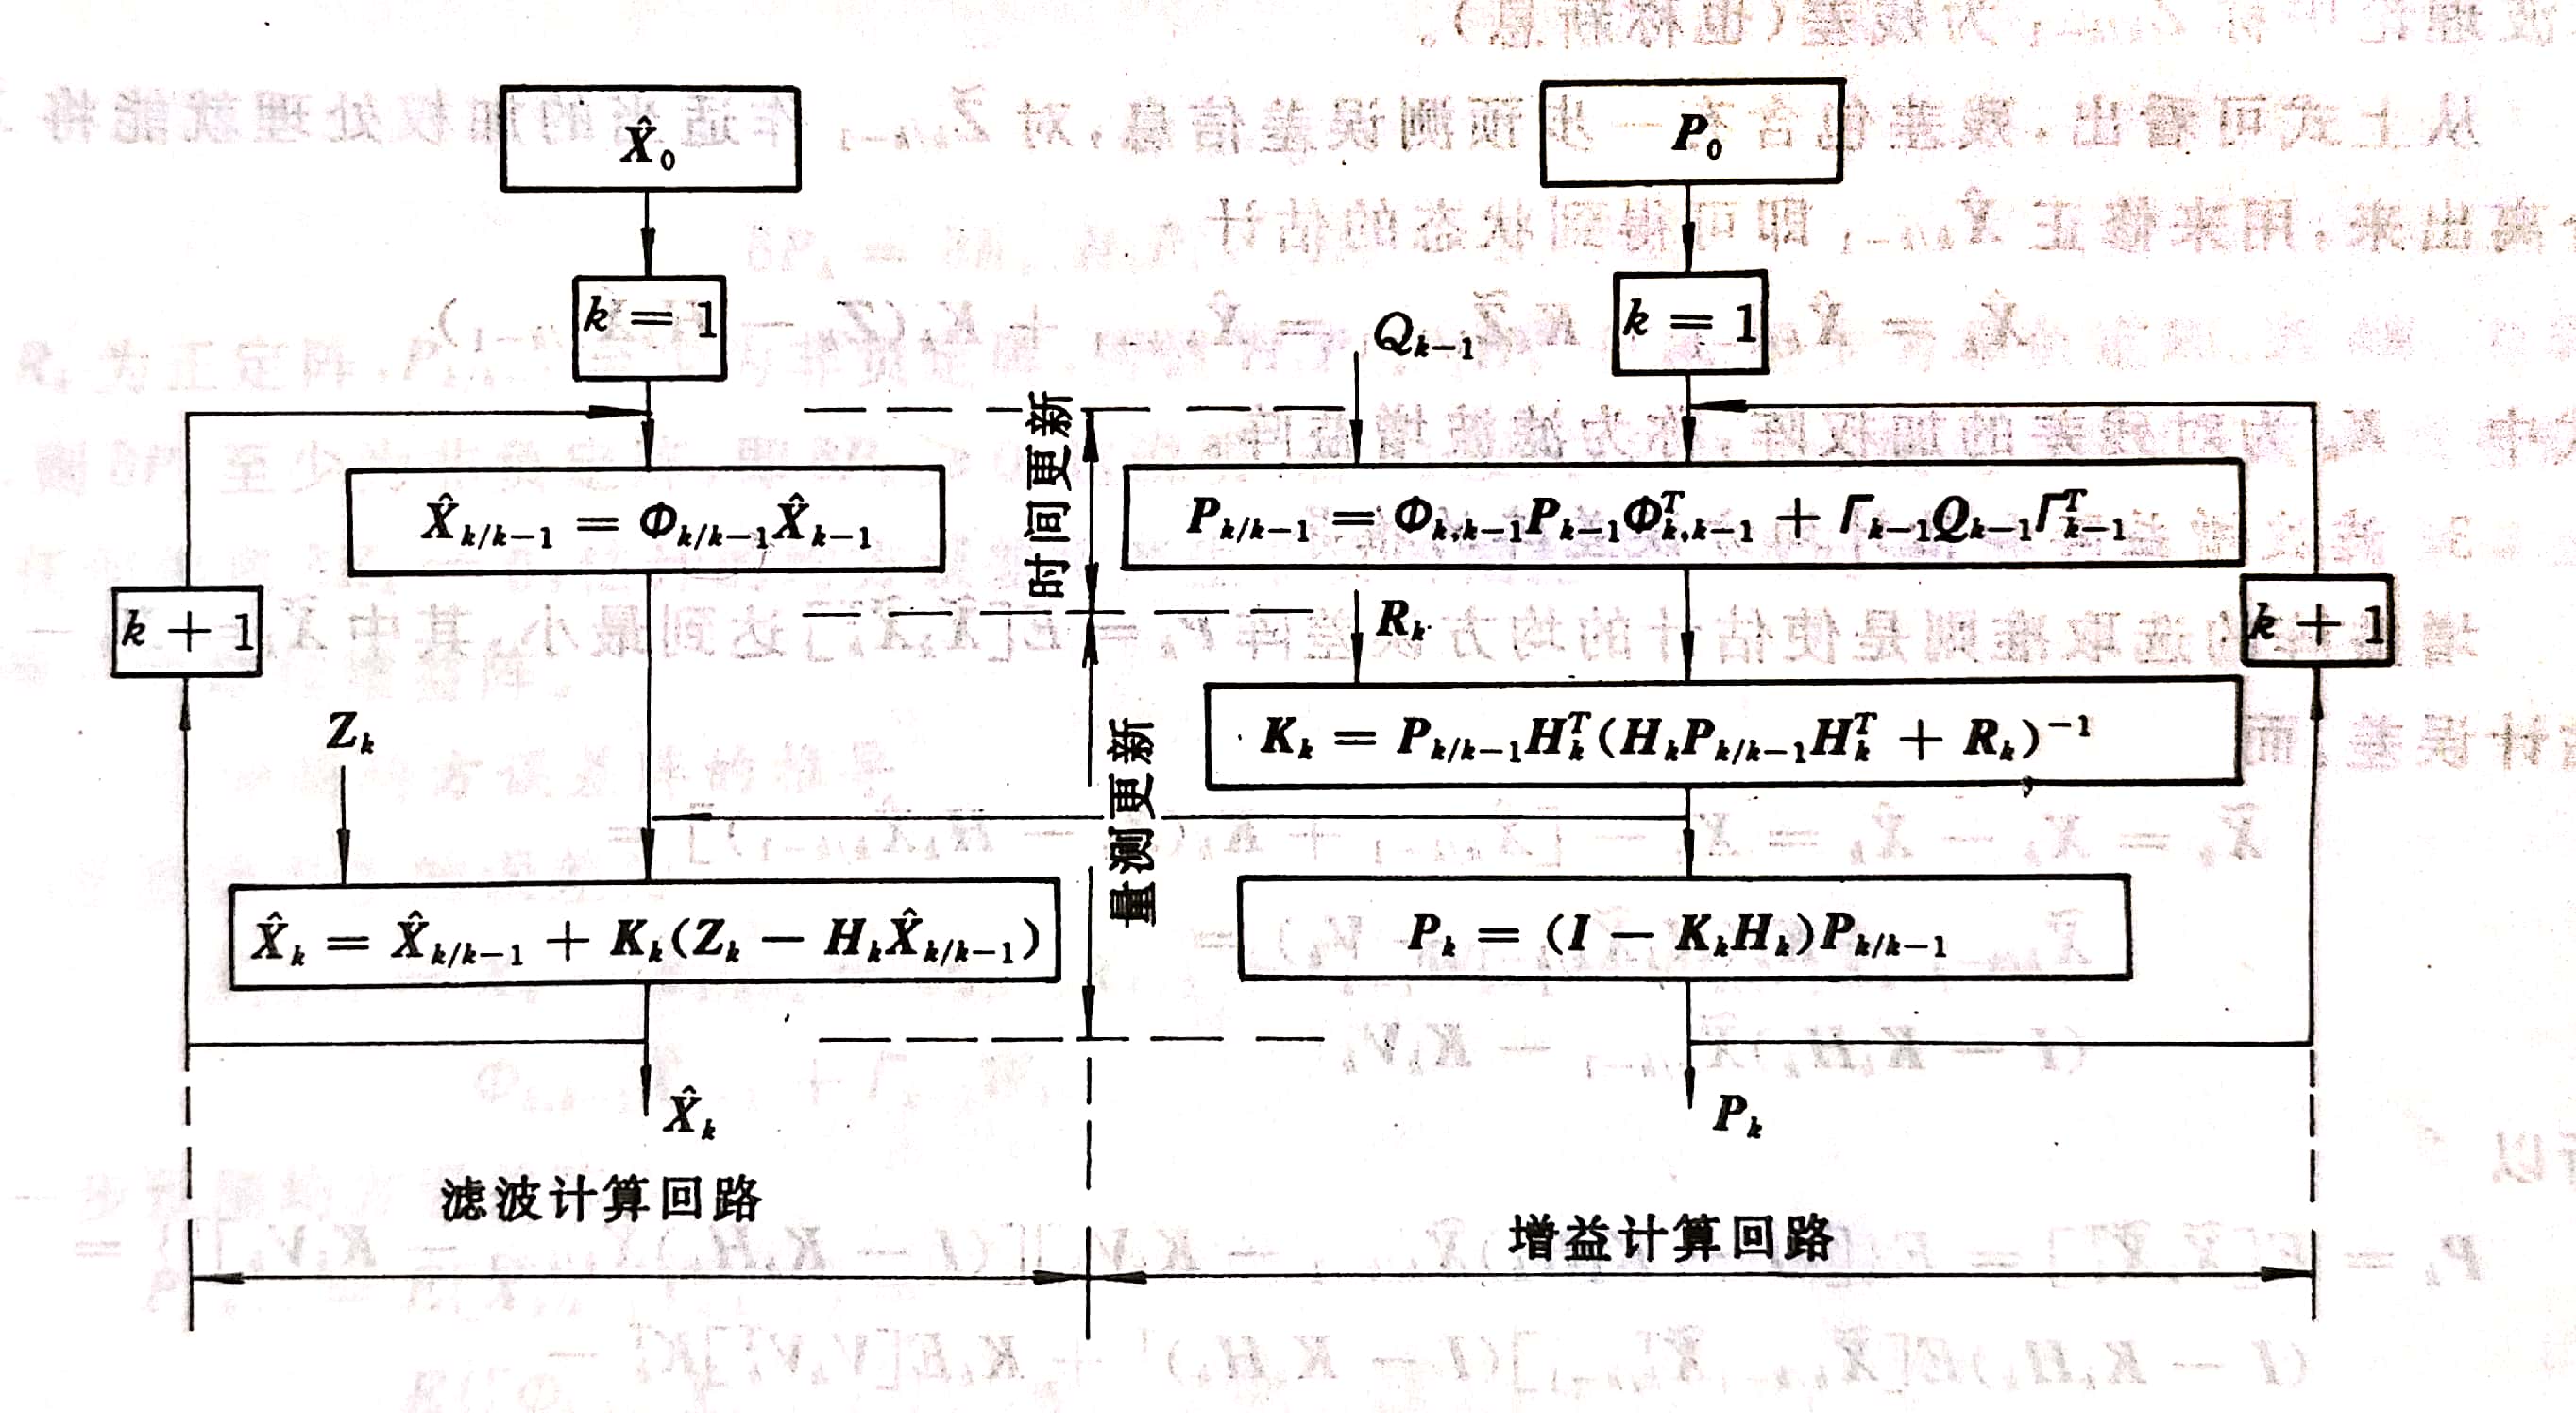 X̂₀
P₀
k = 1
k = 1
Qₖ₋₁
时间更新
X̂ₖ/ₖ₋₁ = Φₖ/ₖ₋₁X̂ₖ₋₁
Pₖ/ₖ₋₁ = Φₖ,ₖ₋₁Pₖ₋₁Φᵀₖ,ₖ₋₁ + Γₖ₋₁Qₖ₋₁Γᵀₖ₋₁
k + 1
Rₖ
k + 1
Zₖ
量测更新
Kₖ = Pₖ/ₖ₋₁Hₖᵀ(HₖPₖ/ₖ₋₁Hₖᵀ + Rₖ)⁻¹
X̂ₖ = X̂ₖ/ₖ₋₁ + Kₖ(Zₖ − HₖX̂ₖ/ₖ₋₁)
Pₖ = (I − KₖHₖ)Pₖ/ₖ₋₁
X̂ₖ
Pₖ
滤波计算回路
增益计算回路